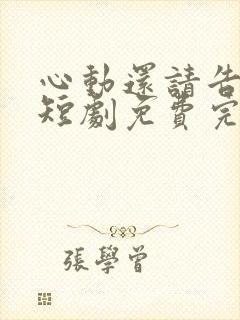 心動還請告
短劇免費完
張學曾